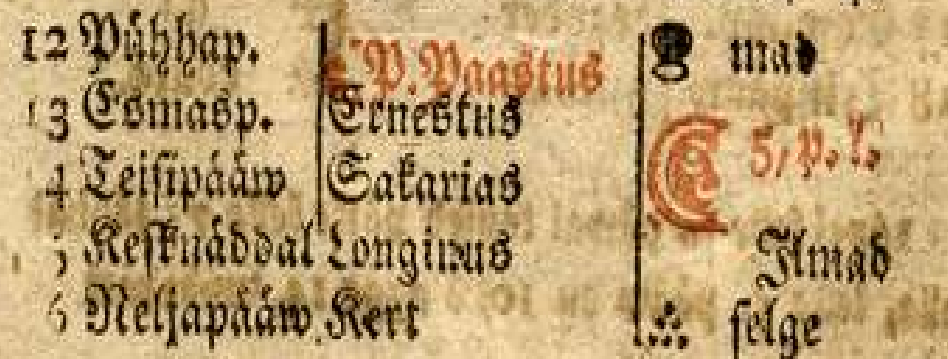 12 Pühhap. P. Paastus mad
13 Esmasp. Ernestus
4 Teisipääw Sakarias 5, p. l.
5 Kesknäddal Longinus Ilmad
6 Neljapääw Kert selge